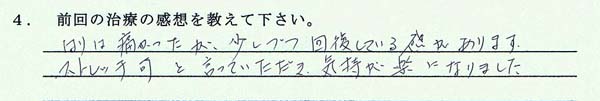 4. 前回の治療の感想を教えて下さい。
はりは痛かったが、少しづつ回復している感があります。
ストレッチ可と言っていただき、気持が楽になりました